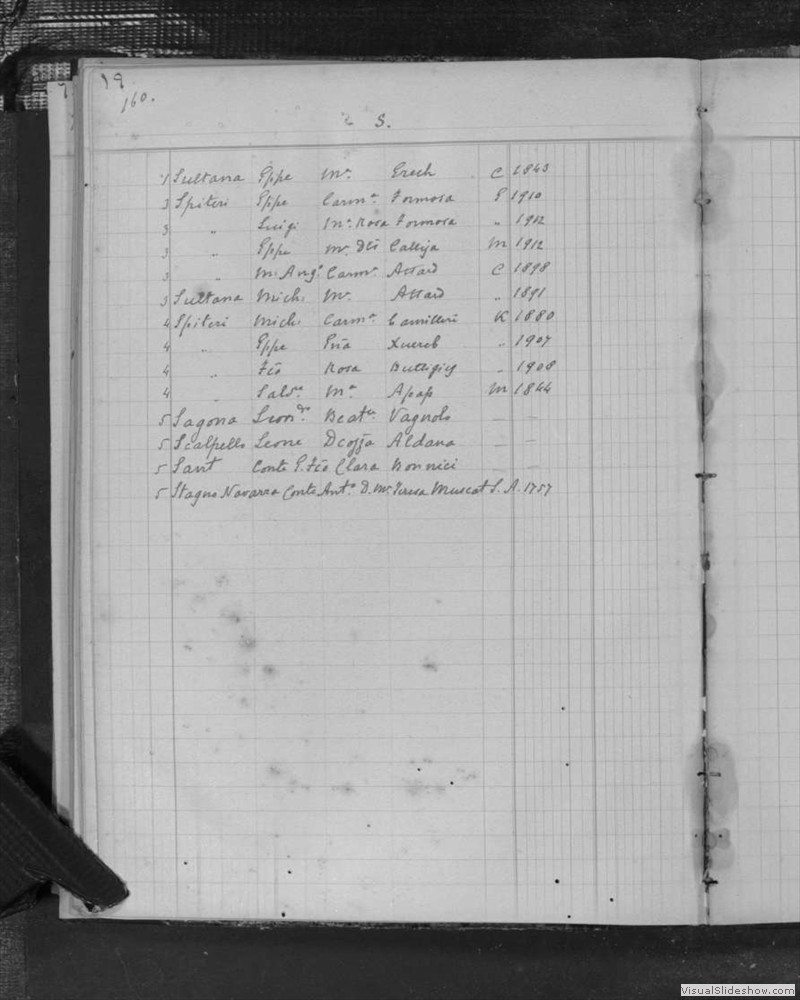 19
160.
S.
1 Sultana Gppe Mª. Grech C 1843
3 Spiteri Gppe Carmª Formosa G 1910
3 " Luigi Mª. Rosa Formosa " 1912
3 " Gppe Mª. Dts Calleja M 1912
3 " M. Angº Carmª. Attard C 1898
3 Sultana Mich. Mª. Attard " 1891
4 Spiteri Mich. Carmª. Camilleri K 1880
4 " Gppe Pna Xuereb " 1907
4 " Fco Rosa Buttigieg " 1908
4 " Salvre Mª Apap M 1844
5 Sagona Leondº. Beatce Vagnolo — —
5 Scalpello Leone Aldana — —
5 Sant Conte G. Fco Clara Bonnici — —
5 Stagno Navarra Conte Antº D. Mª. Teresa Muscat S. A. 1757
VisualSlideshow.com